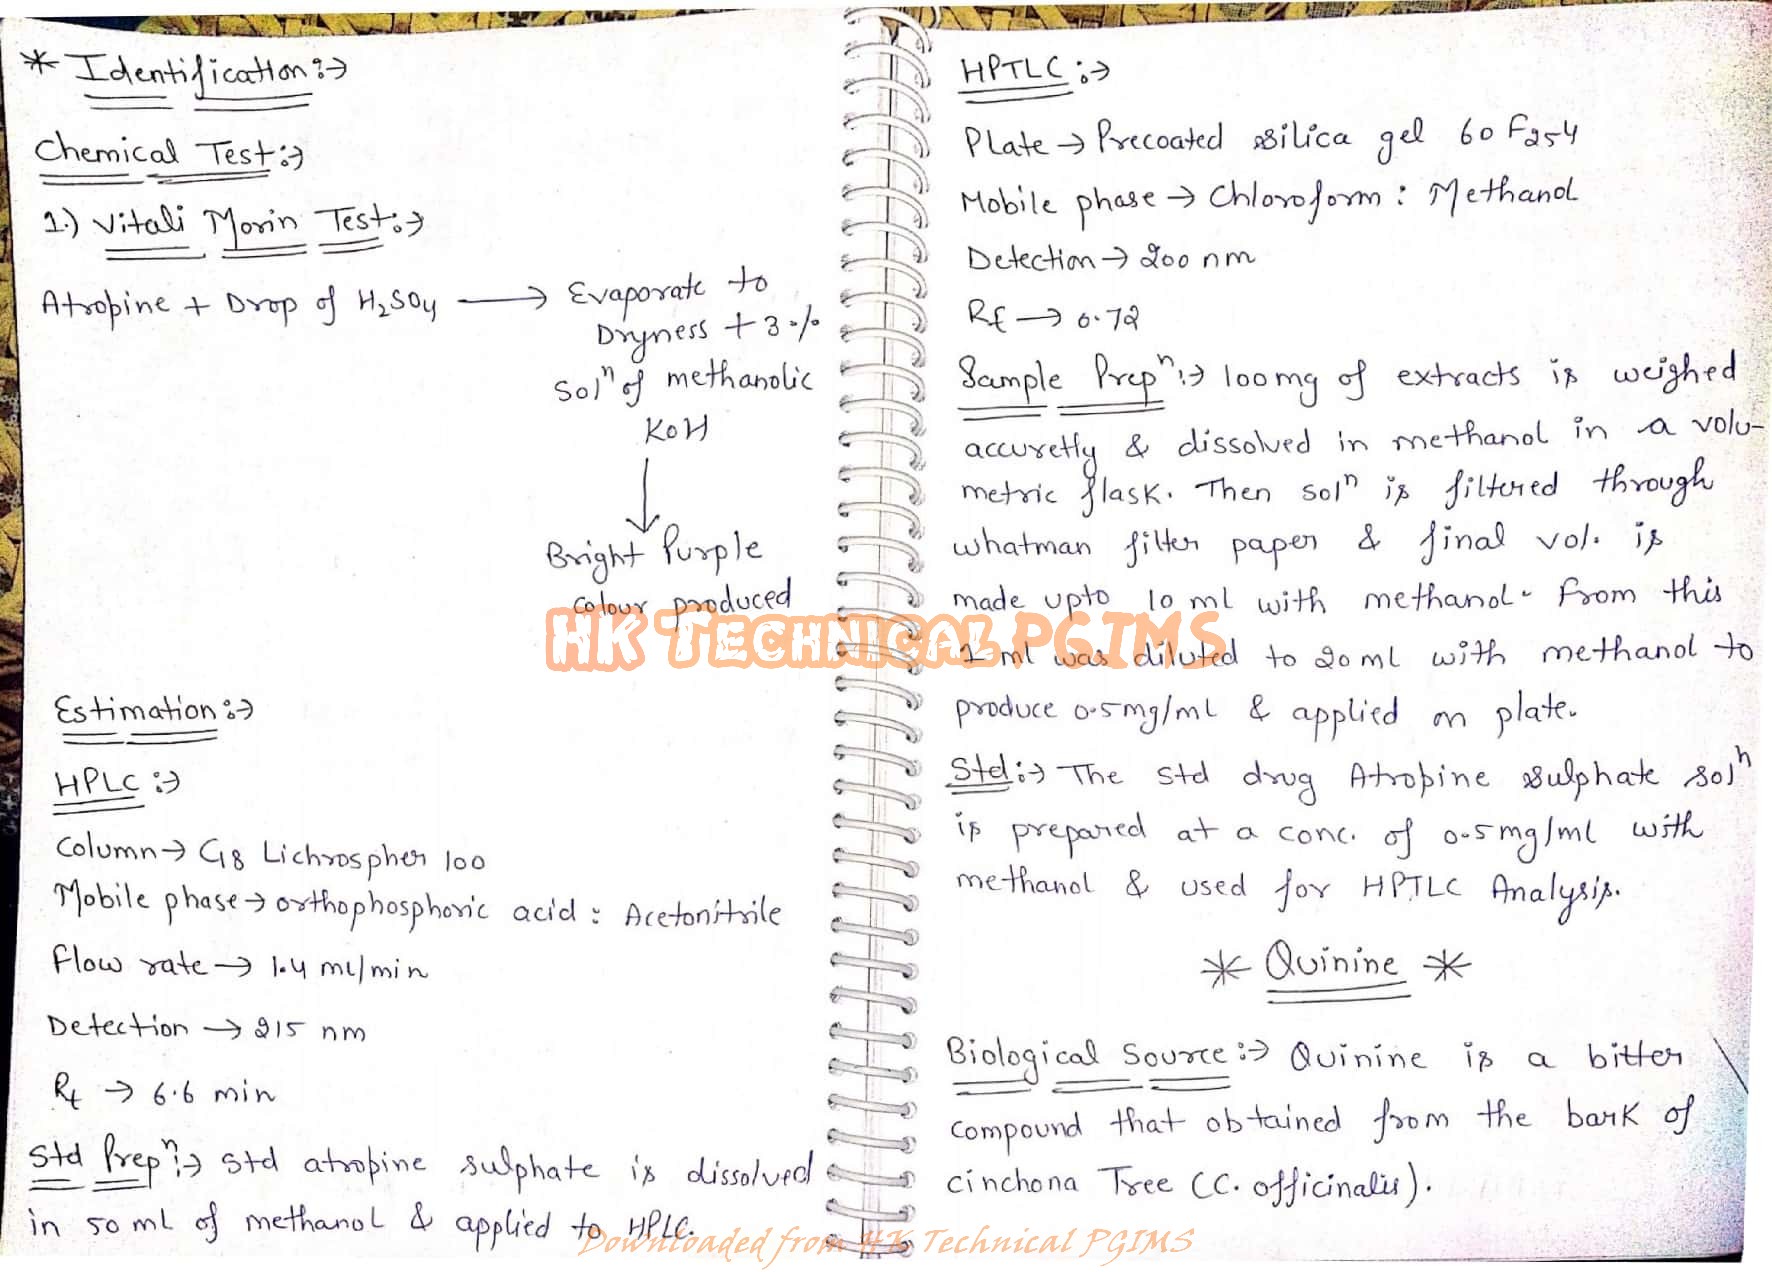 * Identification:→
Chemical Test:→
1.) Vitali Morin Test:→
Atropine + Drop of H₂SO₄ ⟶ Evaporate to
Dryness + 3%
Solⁿ of methanolic
KOH
↓
Bright Purple
colour produced
Estimation:→
HPLC:→
Column → C18 Lichrospher 100
Mobile phase → orthophosphoric acid : Acetonitrile
Flow rate → 1.4 ml/min
Detection → 215 nm
Rt → 6.6 min
Std Prepⁿ:→ Std atropine sulphate is dissolved
in 50 ml of methanol & applied to HPLC.
HPTLC:→
Plate → Precoated silica gel 60 F254
Mobile phase → Chloroform : Methanol
Detection → 200 nm
Rf → 0.72
Sample Prepⁿ:→ 100mg of extracts is weighed
accuretly & dissolved in methanol in a volu-
metric flask. Then solⁿ is filtered through
whatman filter paper & final vol. is
made upto 10 ml with methanol. From this
1 ml was diluted to 20 ml with methanol to
produce 0.5mg/ml & applied on plate.
Std:→ The std drug Atropine sulphate solⁿ
is prepared at a conc. of 0.5mg/ml with
methanol & used for HPTLC Analysis.
* Quinine *
Biological Source:→ Quinine is a bitter
compound that obtained from the bark of
cinchona Tree (C. officinalis).
HK Technical PGIMS
Downloaded from HK Technical PGIMS